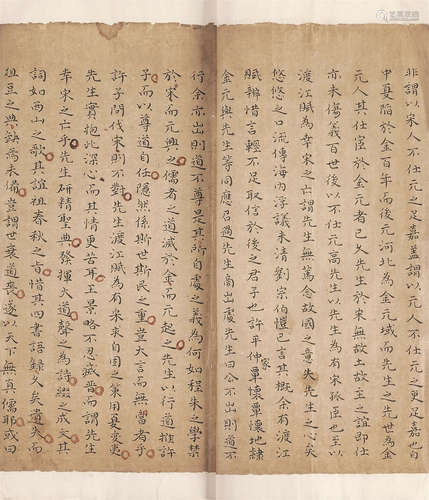 非謂以宋人不仕元之足嘉蓋謂以元人不仕元之更足嘉也自
中夏陷於金百年而後元河北為金元域而先生世為金
元人其仕宦於金元者已久先生於宋無故故主之誼即仕
亦未傷義百世後以不仕元高先生以先生為有宋孤臣也至以
渡江賦為幸宋之亡謂先生無篤念故國之意失先生之心矣
悠悠之口流傳海內浮議未清劉宗伯愷已言其概余有渡江
賦辨惜言輕不足取信於後之君子也許平仲家覃懷覃懷地隸
金元與先生等同應召過先生商出處先生曰公不出則道不
行余亦出則道不尊是其所自處之義為何如程朱之學禁
於宋而元興之儒者之道滅於金而元起之先生以行道推許
子而以尊道自任隱然係斯世斯民之重豈大言而無當者乎
許子問伐宋則不對先生渡江賦為有宋求自固之策用夏變夷
先生實抱此深心而其情更苦耳工景略不忍滅晉而謂先生
幸宋之亡乎先生研精聖典發揮大道聲之為詩綴之成文其
詞如西山之歌其誼祖春秋之旨惜其四書語錄久矣遺失而
俎豆之典缺焉未備豈謂世衰道喪遂以天下無真儒耶或曰